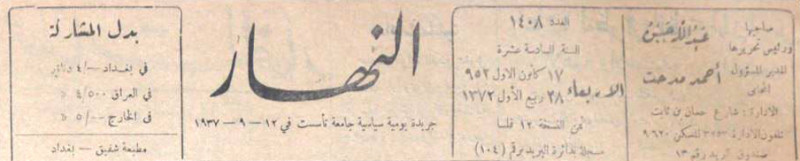 صاحبها
ورئيس تحريرها
عبد الله حسن
المدير المسؤول
المحامي
أحمد مدحت
الادارة : شارع حسان بن ثابت
تلفون الادارة ٣٠٥٣ للسكن ٩٦٢٠
صندوق البريد رقم ١٣
العدد ١٤٠٨
السنة السادسة عشرة
الاربعاء
١٧ كانون الاول ٩٥٢
٢٨ ربيع الأول ١٣٧٢
ثمن النسخة ١٢ فلسا
مسجلة بدائرة البريد برقم (١٠٤)
النهار
جريدة يومية سياسية جامعة تأسست في ١٢ — ٩ — ١٩٣٧
بدل المشاركة
في بغداد ٤/٠٠٠ دنانير
في العراق ٤/٥٠٠ «
في الخارج ٥/٠٠٠ «
مطبعة شفيق - بغداد